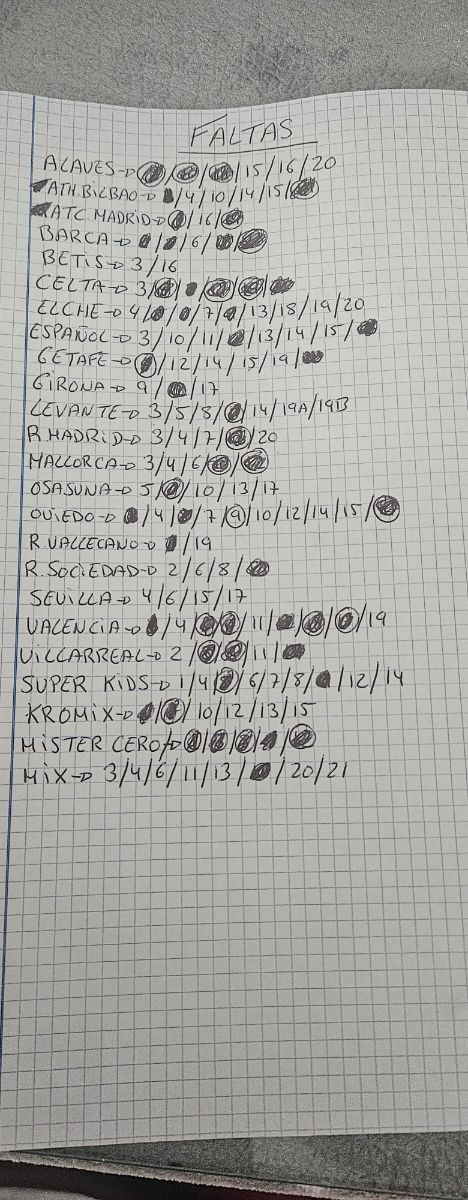 FALTAS
ALAVES→ / / /15/16/20
ATH.BILBAO→ /4/10/14/15/
ATC.MADRID→ /16/
BARCA→ / /6/ /
BETIS→ 3/16
CELTA→ 3/ / / / /
ELCHE→ 4/ / /7/ /13/18/19/20
ESPAÑOL→ 3/10/11/ /13/14/15/
GETAFE→ /12/14/15/19/
GIRONA→ 9/ /17
LEVANTE→ 3/5/8/ /14/19A/19B
R.MADRID→ 3/4/7/ /20
MALLORCA→ 3/4/6/ /
OSASUNA→ 5/ /10/13/17
OVIEDO→ /4/ /7/9/10/12/14/15/
R.VALLECANO→ /19
R.SOCIEDAD→ 2/6/8/
SEVILLA→ 4/6/15/17
VALENCIA→ /4/ / /11/ / / /19
VILLARREAL→ 2/ / /11/
SUPER KIDS→ 1/4/ /6/7/8/ /12/14
KROMIX→ / /10/12/13/15
MISTER CERO→ / / / /
MIX→ 3/4/6/11/13/ /20/21